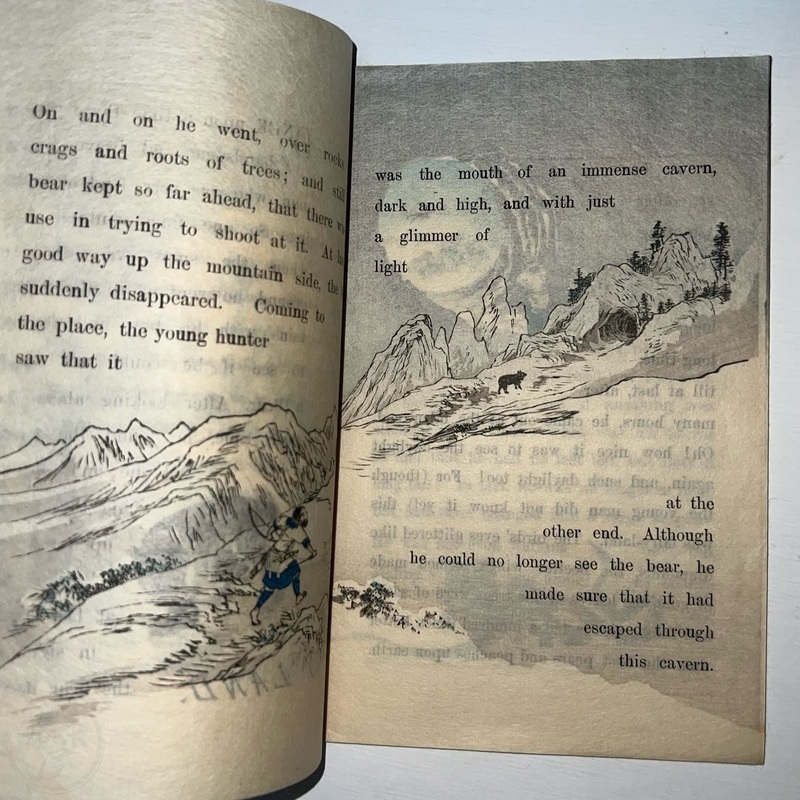 On and on he went, over rocks
crags and roots of trees; and still
bear kept so far ahead, that there
use in trying to shoot at it. At
good way up the mountain side, the
suddenly disappeared. Coming to
the place, the young hunter
saw that it
was the mouth of an immense cavern,
dark and high, and with just
a glimmer of
light
at the
other end. Although
he could no longer see the bear, he
made sure that it had
escaped through
this cavern.